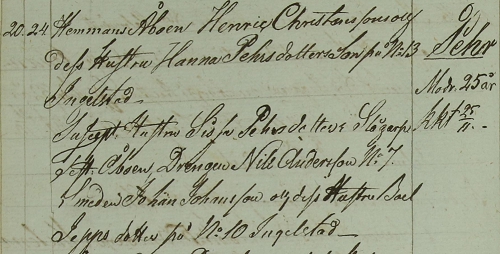 20. 24 Hemmans Åboen Henric Christensson och
dess Hustru Hanna Pehrsdotters Son på No 13
Ingelstad
Suscept: Hustru Sissa Pehrsdotter i
Åboen, Drengen Nils Andersson No 7.
Johan Johansson och dess Hustru Boel
Jepps dotter på No 10 Ingelstad
Pehr
Modr. 25 år